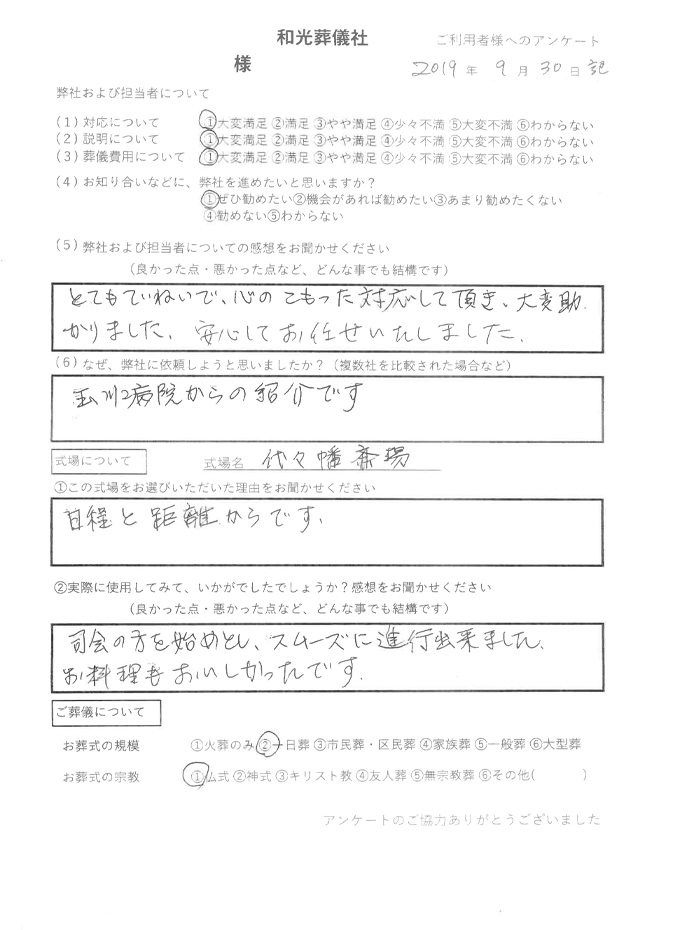 和光葬儀社
ご利用者様へのアンケート
様
2019年 9月30日 記
弊社および担当者について
(1) 対応について ①大変満足 ②満足 ③やや満足 ④少々不満 ⑤大変不満 ⑥わからない
(2) 説明について ①大変満足 ②満足 ③やや満足 ④少々不満 ⑤大変不満 ⑥わからない
(3) 葬儀費用について ①大変満足 ②満足 ③やや満足 ④少々不満 ⑤大変不満 ⑥わからない
(4) お知り合いなどに、弊社を進めたいと思いますか？
①ぜひ勧めたい②機会があれば勧めたい③あまり勧めたくない
④勧めない⑤わからない
(5) 弊社および担当者についての感想をお聞かせください
（良かった点・悪かった点など、どんな事でも結構です）
とてもていねいで、心のこもった対応して頂き、大変助
かりました。安心してお任せいたしました。
(6) なぜ、弊社に依頼しようと思いましたか？（複数社を比較された場合など）
玉川病院からの紹介です
式場について
式場名 代々幡斎場
①この式場をお選びいただいた理由をお聞かせください
日程と距離からです。
②実際に使用してみて、いかがでしたでしょうか？感想をお聞かせください
（良かった点・悪かった点など、どんな事でも結構です）
司会の方を始めとし、スムーズに進行出来ました。
お料理もおいしかったです。
ご葬儀について
お葬式の規模 ①火葬のみ ②一日葬 ③市民葬・区民葬 ④家族葬 ⑤一般葬 ⑥大型葬
お葬式の宗教 ①仏式 ②神式 ③キリスト教 ④友人葬 ⑤無宗教葬 ⑥その他( )
アンケートのご協力ありがとうございました